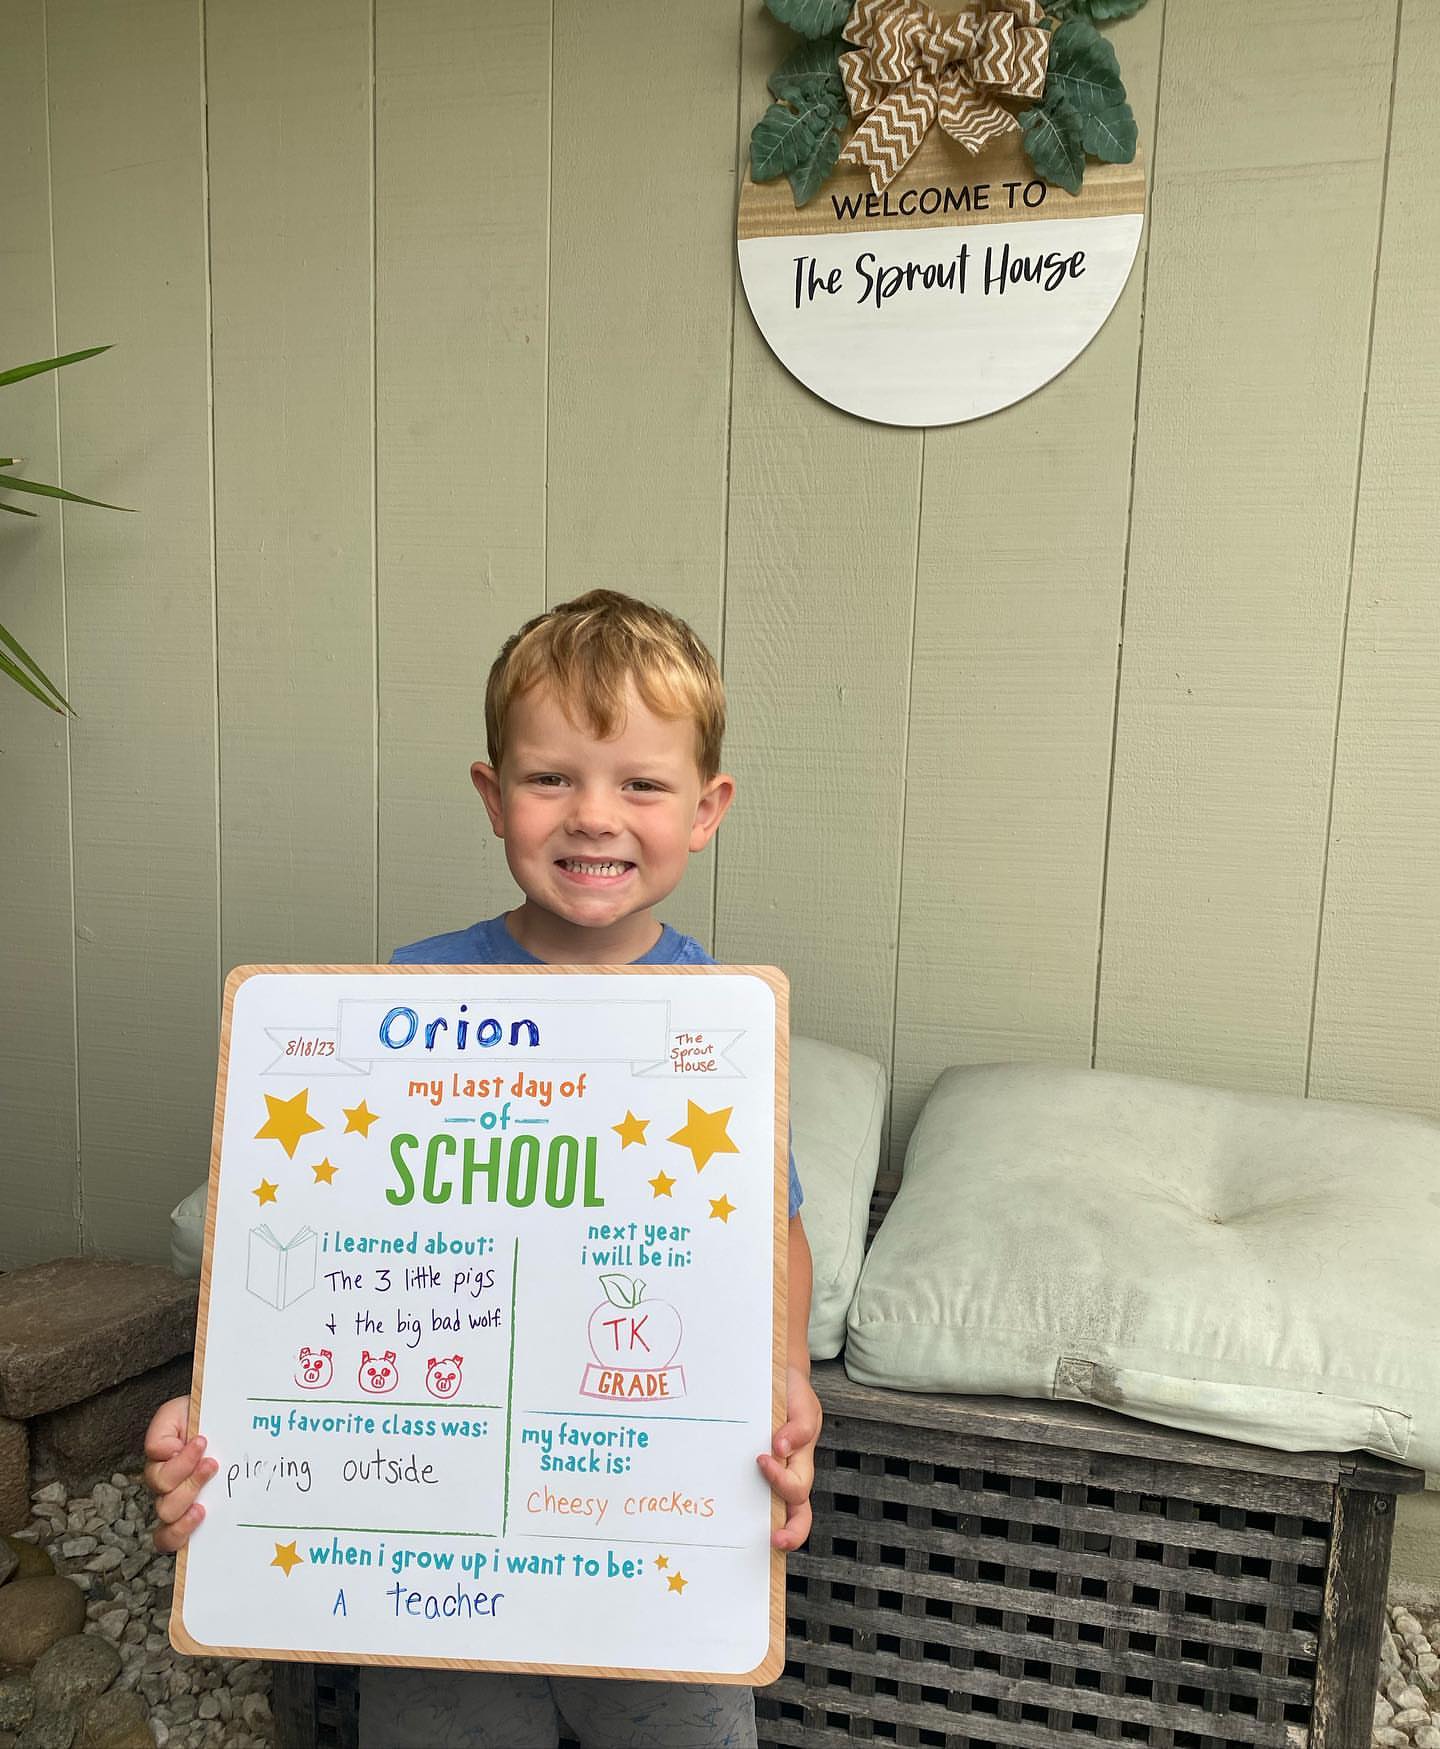 WELCOME TO
The Sprout House
Orion
8/18/23
The
Sprout
House
my last day of
of
SCHOOL
i learned about:
The 3 little pigs
+ the big bad wolf.
next year
i will be in:
TK
GRADE
my favorite class was:
playing outside
my favorite
snack is:
cheesy crackers
when i grow up i want to be:
A teacher